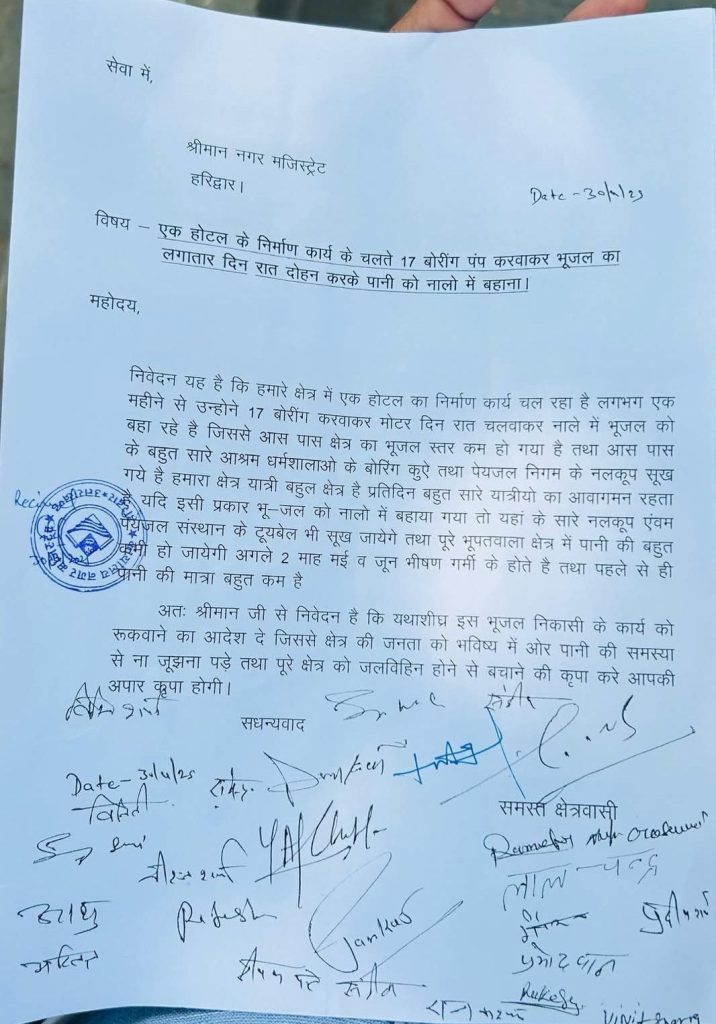 सेवा में,
श्रीमान नगर मजिस्ट्रेट
हरिद्वार।
Date - 30/4/25
विषय – एक होटल के निर्माण कार्य के चलते 17 बोरींग पंप करवाकर भूजल का
लगातार दिन रात दोहन करके पानी को नालो में बहाना।
महोदय,
निवेदन यह है कि हमारे क्षेत्र में एक होटल का निर्माण कार्य चल रहा है लगभग एक
महीने से उन्होने 17 बोरींग करवाकर मोटर दिन रात चलवाकर नाले में भूजल को
बहा रहे है जिससे आस पास क्षेत्र का भूजल स्तर कम हो गया है तथा आस पास
के बहुत सारे आश्रम धर्मशालाओ के बोरिंग कुऐ तथा पेयजल निगम के नलकूप सूख
गये है हमारा क्षेत्र यात्री बहुल क्षेत्र है प्रतिदिन बहुत सारे यात्रीयो का आवागमन रहता
है यदि इसी प्रकार भू–जल को नालो में बहाया गया तो यहां के सारे नलकूप एंवम
पेयजल संस्थान के टूयबेल भी सूख जायेगे तथा पूरे भूपतवाला क्षेत्र में पानी की बहुत
कमी हो जायेगी अगले 2 माह मई व जून भीषण गर्मी के होते है तथा पहले से ही
पानी की मात्रा बहुत कम है
अतः श्रीमान जी से निवेदन है कि यथाशीघ्र इस भूजल निकासी के कार्य को
रूकवाने का आदेश दे जिससे क्षेत्र की जनता को भविष्य में ओर पानी की समस्या
से ना जूझना पड़े तथा पूरे क्षेत्र को जलविहिन होने से बचाने की कृपा करे आपकी
अपार कृपा होगी।
सधन्यवाद
Date- 30/4/25
समस्त क्षेत्रवासी
लाल चन्द्र
Rajesh
Pankaj
Rakesh
Vinit Sharma